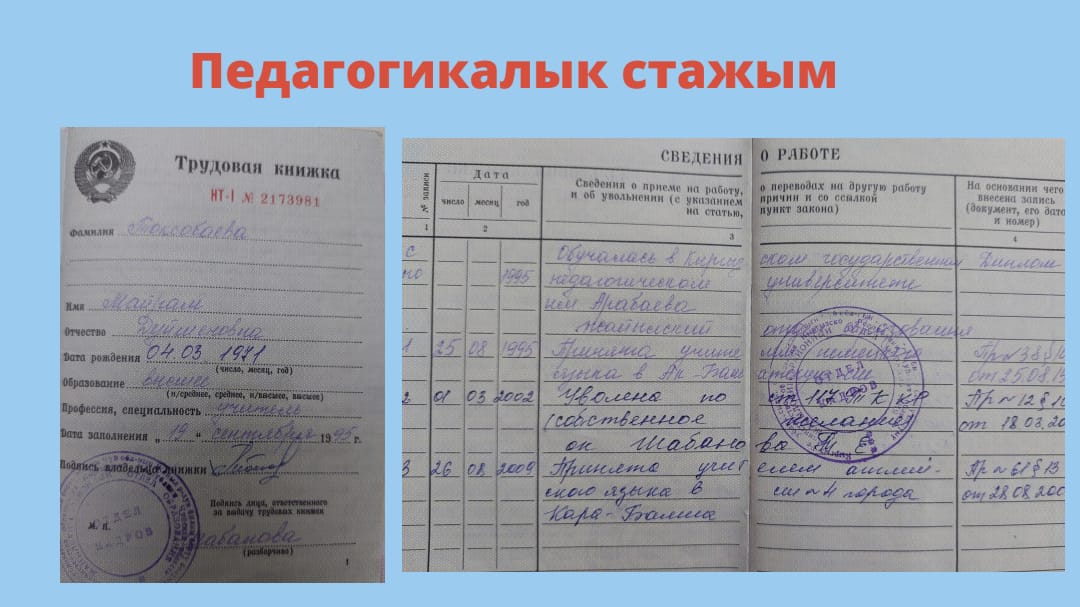 Педагогикалык стажым
Трудовая книжка
НТ-I № 2173981
Фамилия Токсобаева
Имя Майрам
Отчество Дуйшеновна
Дата рождения 04.03 1971
(число, месяц, год)
Образование высшее
(н/среднее, среднее, н/высшее, высшее)
Профессия, специальность учитель
Дата заполнения „ 19 “ сентября 1995 г.
Подпись владельца книжки
Подпись лица, ответственного
за выдачу трудовых книжек
М. П.
ОТДЕЛ
КАДРОВ
(разборчиво)
1
СВЕДЕНИЯ О РАБОТЕ
№ записи
Дата
число месяц год
Сведения о приеме на работу, о переводах на другую работу
и об увольнении (с указанием причин и со ссылкой
на статью, пункт закона)
На основании чего
внесена запись
(документ, его дата
и номер)
1 2 3 4
с Обучалась в Кыргызском государственном Диплом
по 1995 педагогическом университете
им Арабаева
Жайылский отдел образования
1 25 08 1995 Принята учителем немецкого Пр№38§
языка в Ак-Баш от 25.08.
2 01 03 2002 Уволена по ст КР Пр№12§
(собственное желание) от 18 03.20
ок Шабанова
3 26 08 2009 Принята учителем англий- Пр№61§13
ского языка в сш№4 города от 28.08.200
Кара-Балта
ОТДЕЛ
КАДРОВ